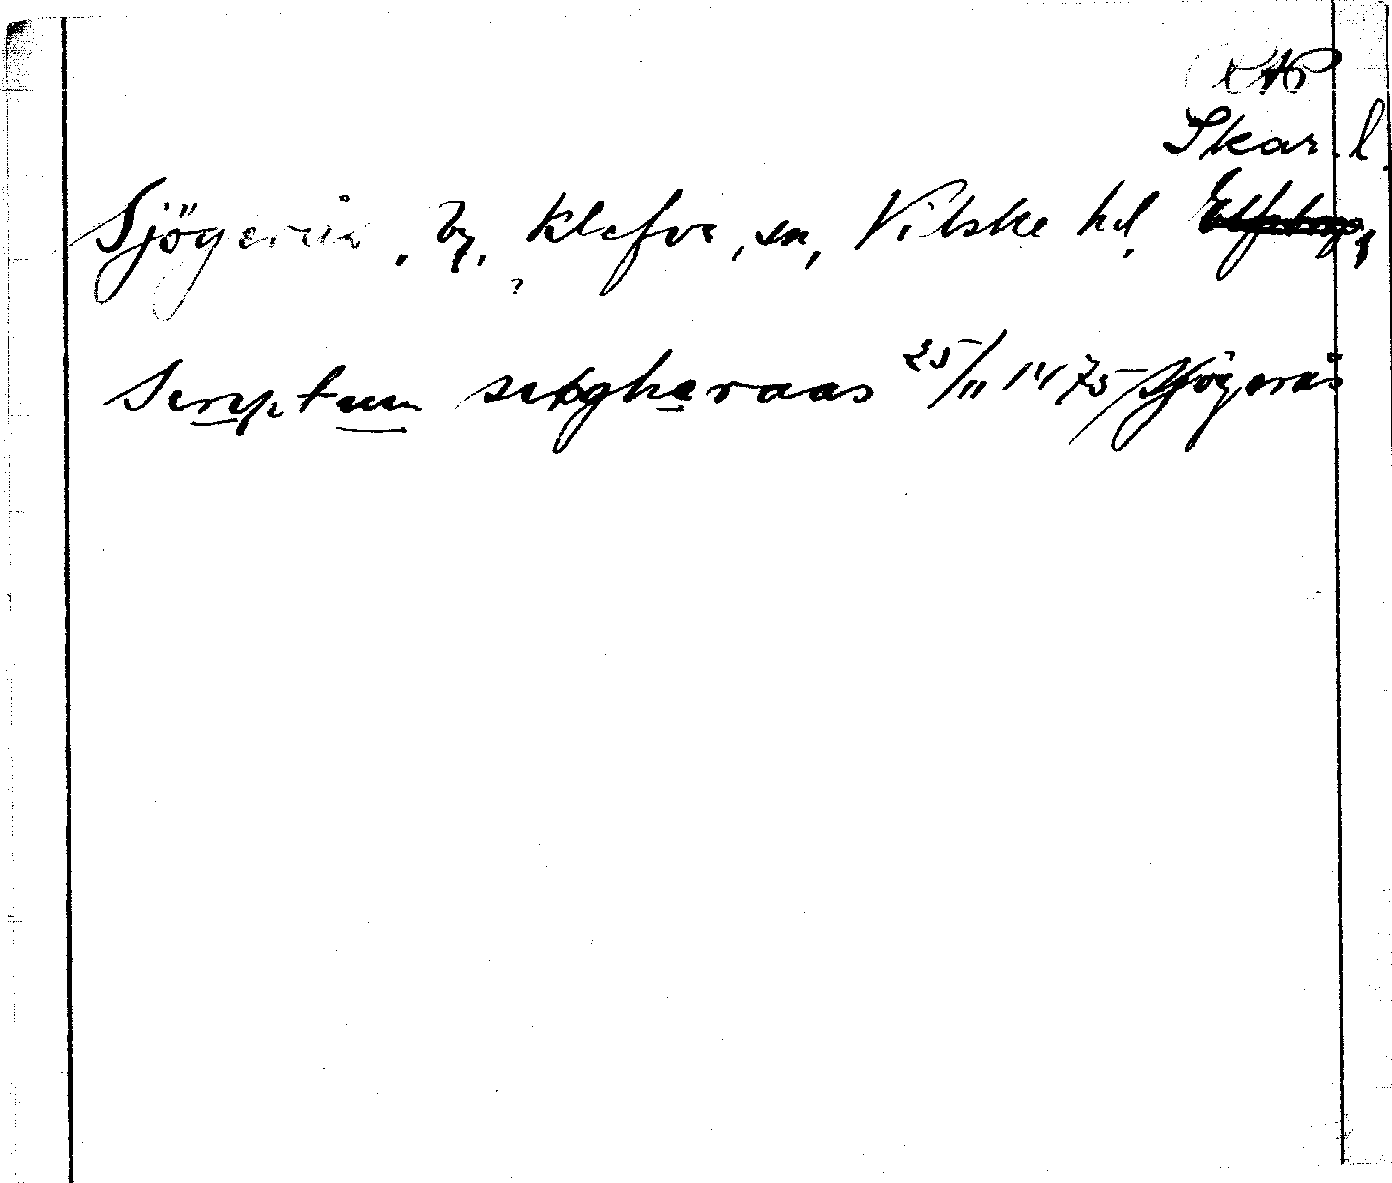 Skar. l.
Sjögerås, by, Klefva, sn, Vilske hd,
?
Scriptum setgheraas 25/11 1475 Sjögerås